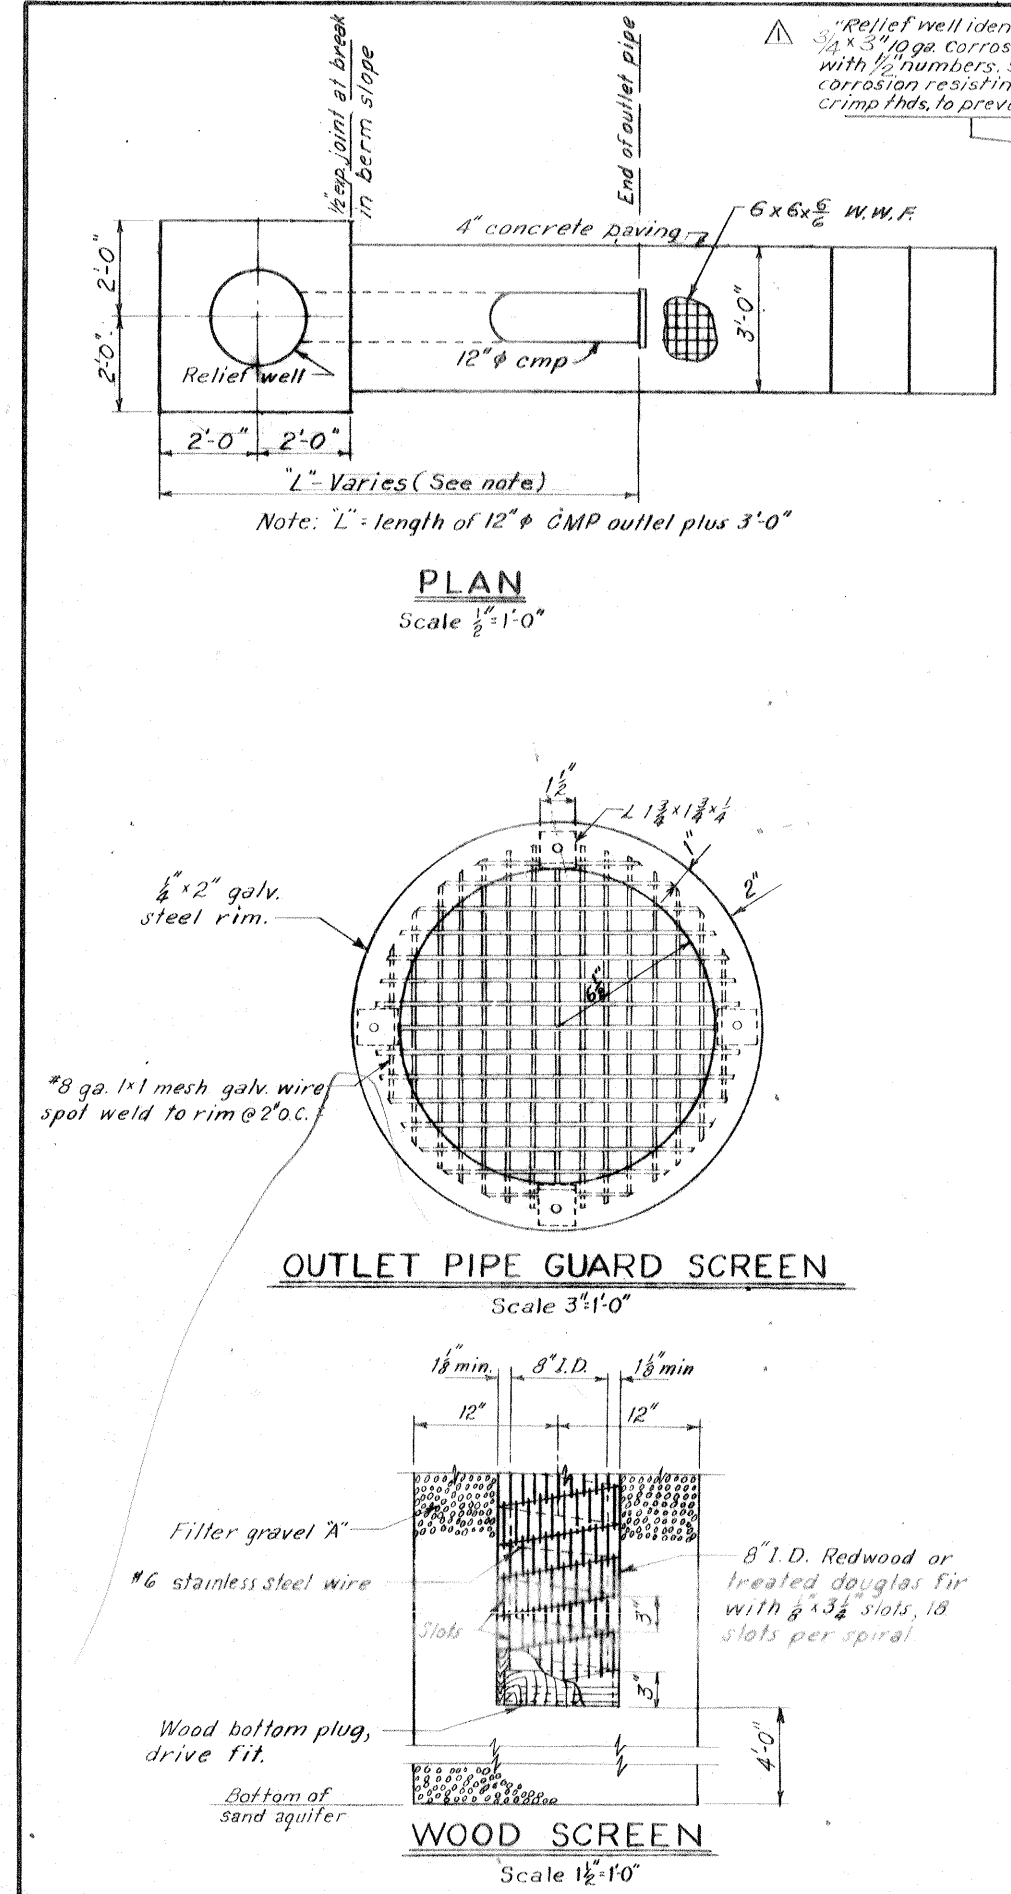 1
"Relief well iden
3/4 × 3" 10 ga. corros
with 1/2" numbers. s
corrosion resistin
crimp thds, to preve
1/2" exp. joint at break
in berm slope
End of outlet pipe
6 x 6 x 6/6 W.W.F.
4" concrete paving
2'-0"
2'-0"
3'-0"
12" φ cmp
Relief well
2'-0" 2'-0"
"L" - Varies (See note)
Note: "L" = length of 12" φ CMP outlet plus 3'-0"
PLAN
Scale 1/2" = 1'-0"
1 1/2"
L 1 3/4 x 1 3/4 x 1/4
1"
2"
1/4" x 2" galv.
steel rim.
6 1/8"
#8 ga. 1x1 mesh galv. wire
spot weld to rim @ 2" O.C.
OUTLET PIPE GUARD SCREEN
Scale 3" = 1'-0"
1 1/8" min. 8" I.D. 1 1/8" min
12" 12"
Filter gravel "A"
#6 stainless steel wire
Slots
8" I.D. Redwood or
treated douglas fir
with 1/8" x 3 1/4" slots, 18
slots per spiral
3"
3"
Wood bottom plug,
drive fit.
4'-0"
Bottom of
sand aquifer
WOOD SCREEN
Scale 1 1/2" = 1'-0"